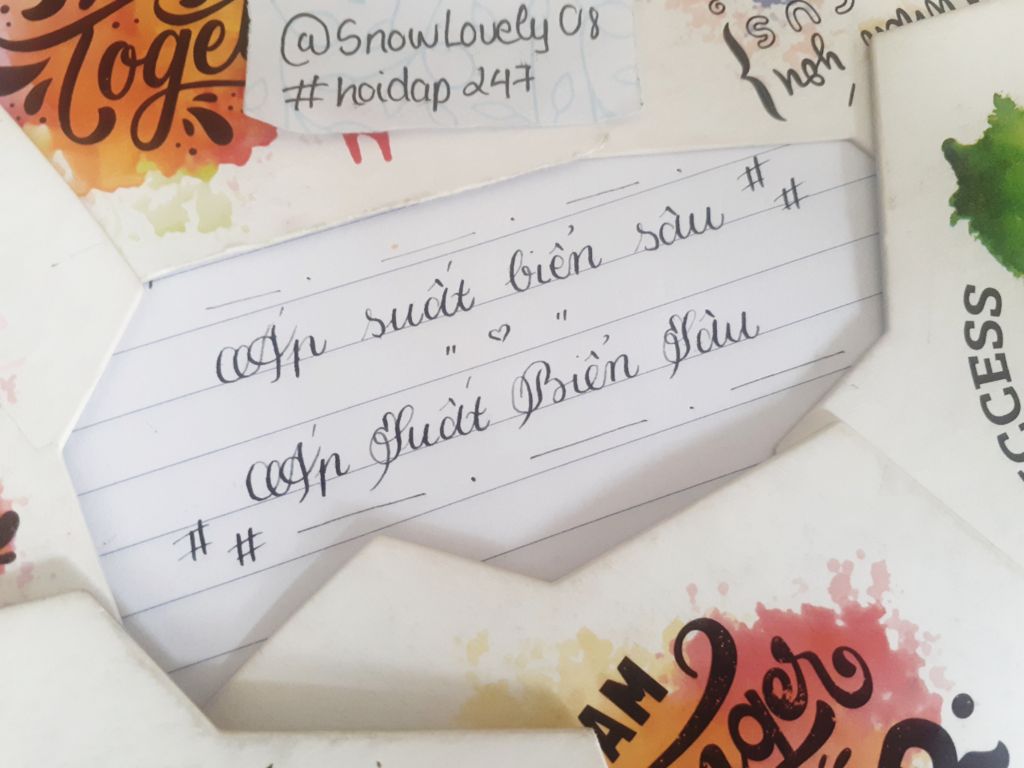 Toge
@SnowLovely08
#hoidap247
ngh
Áp suất biển sâu # #
" ♡ "
Áp Suất Biển Sâu
# #
CCESS
AM